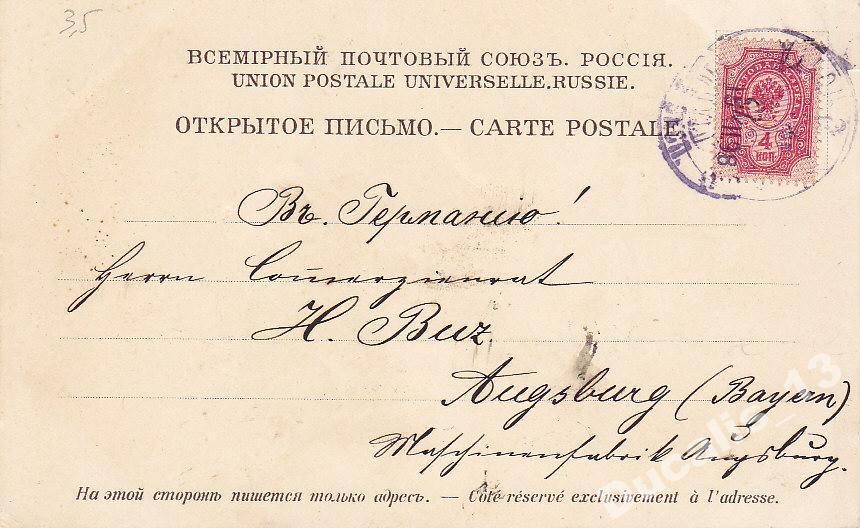 3,5
ВСЕМІРНЫЙ ПОЧТОВЫЙ СОЮЗЪ. РОССІЯ.
UNION POSTALE UNIVERSELLE. RUSSIE.
ОТКРЫТОЕ ПИСЬМО.— CARTE POSTALE.
4
КОП
Въ. Германію!
Herrn Com̅erzienrat
H. Buz
Augsburg (Bayern)
Maschinenfabrik Augsburg.
На этой сторонѣ пишется только адресъ. — Côté réservé exclusivement à l'adresse.
Ducalis_13